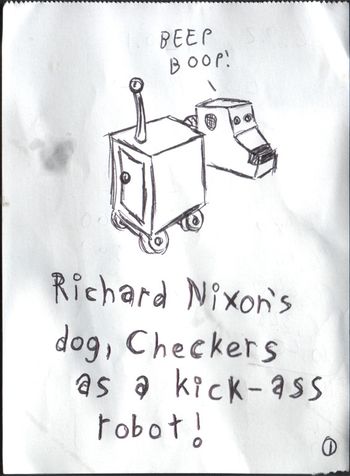 BEEP
BOOP!
Richard Nixon's
dog, Checkers
as a kick-ass
robot!
1